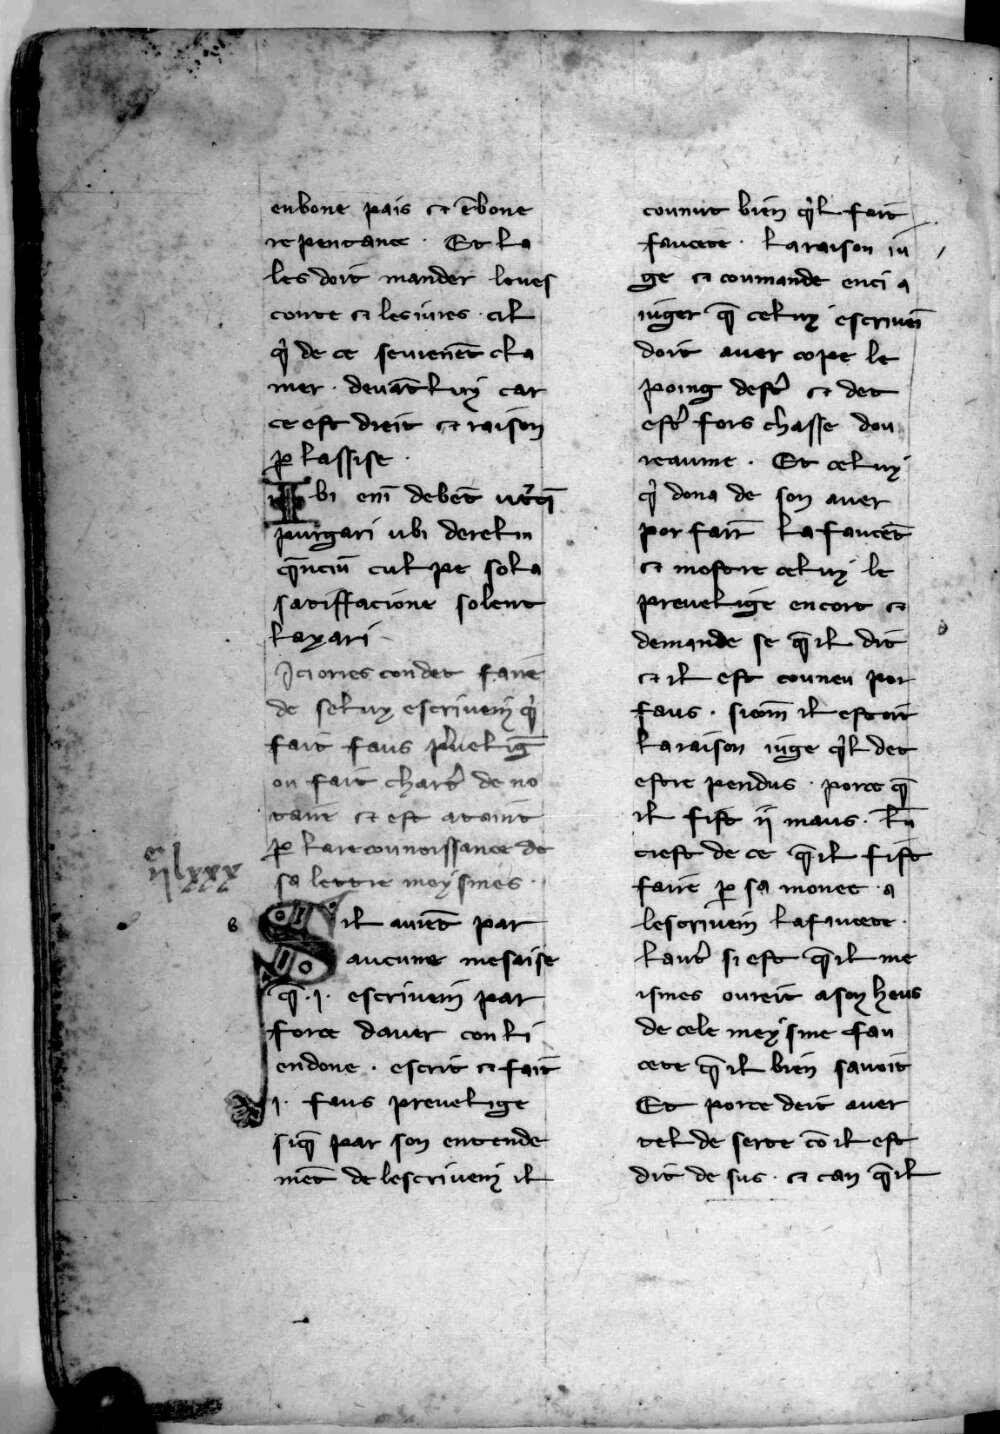 enbone pais et ēbone
repentance · Et la
les doit mander loues
conte et lesiures · cil
q̄ de ce seuienēt cla
mer · deuāt luy car
ce est dreit et raison
ꝑ lassise ·
Ibi enī debēt utiq̄
purgari ubi derelin
q̄nciū culpe sola
satiffacione solent
laxari ·
Ici ores condet faire
de seluy escriuein q̄
fait faus p̄ueliḡ
ou fait chart̄ de no
taire et est ataint
ꝑ lareconnoissance de
sa lettre moysmes ·
ijᶜ lxxx
Sil auiēt par
aucune mesaise
q̄ · j · escriuein par
force dauer con li
endone · escrit et fait
j · faus preuelige
siq̄ par son entende
mēt de lescriuein il
connut bien q̄l fait
faucete · la raison iu
ge et coumande enci a
iuger q̄ celuy escriuēi
doit auer cope le
poing destr̄ et det
estr̄ fors chasse dou
reaume · Et celuy
q̄ dona de son auer
por fair̄ la faucet̄
et mostre celuy le
preuelige encort et
demande se q̄ il dit
et il est couneu por
faus · sicom̄ il estoit
la raison iuge q̄l det
estre pendus · porce q̄
il fist ij maus · lū
ciest de ce q̄ il fist
faire ꝑ sa monee · a
lescriuein la faucete ·
laut̄ si est q̄ il me
ismes oureit a son heus
de cele meysme fau
cete q̄ il bien sauoit
Et porce deit auer
tel de serte cō il est
dit de sus · et can q̄ il